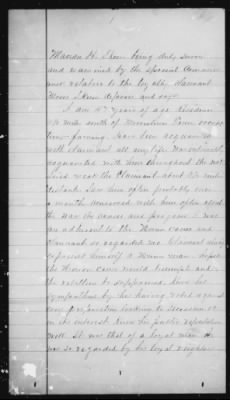 being duly sworn
and examined by the special Commissi
oner relative to the loyalty Claimant
deposes and says
I am 47 years of age Residence
miles south of Tenn occupa
tion farming. Have been acquainted
with claimant all my life. Was intimately
acquainted with him throughout the war
Lived near the Claimant about
distant. Saw him often probably
a month conversed with him often about
the war its causes and progress. I was
an adherent to the Union cause and
Claimant so regarded me. Claimant always
expressed himself a Union man. hoped
the Union cause would triumph and
the rebellion be suppressed. his
sympathies by his having voted against
any looking to Secession or
in its interest. Know his public reputation
well. It was that of a loyal man. He
was so regarded by his loyal neighbors